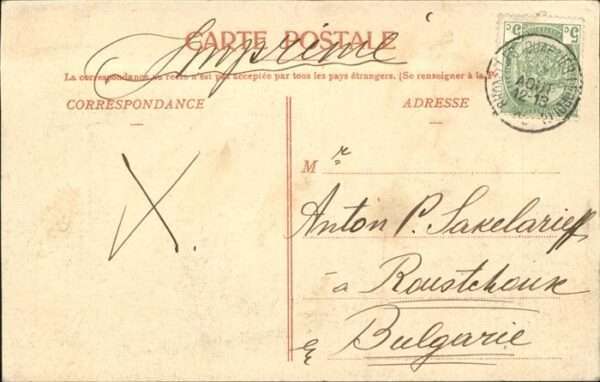 CARTE POSTALE
Imprimé
La correspondance au recto n'est pas acceptée par tous les pays étrangers. (Se renseigner à la
CORRESPONDANCE
ADRESSE
X.
M r
Anton P. Sakelarieff
à Roustchouk
Bulgarie
5c 5c
AOUT
12-13